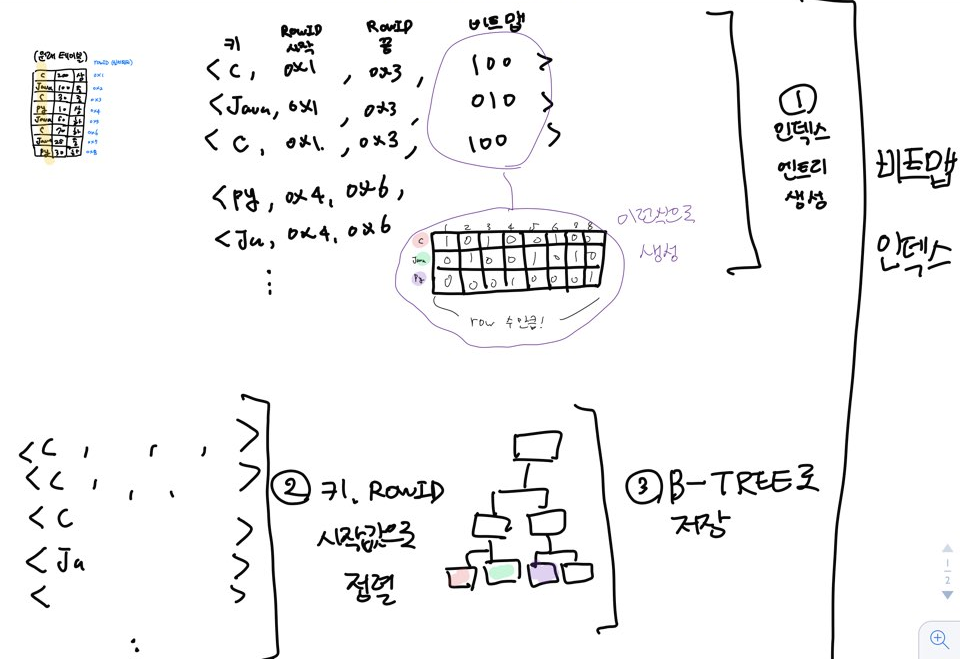 (문제 테이블)
C 20 상 0x1
Java 100 중 0x2
C 30 중 0x3
Py 10 상 0x4
Java 50 하
C 70 하 0x6
Java 25 중
Py 30 하 0x8
키 RowID 시작 RowID 끝 비트맵
<C, 0x1, 0x3, 100>
<Java, 0x1, 0x3, 010>
<C, 0x1, 0x3, 100>
<Py, 0x4, 0x6,
<Ja, 0x4, 0x6
⋮
이런식으로
생성
1 2 3 4 5 6 7 8
C 1 0 1 0 0 1 0 0
Java 0 1 0 0 1 0 1 0
Py 0 0 0 1 0 0 0 1
row 수만큼!
① 인덱스
엔트리
생성
비트맵
인덱스
<C , , , >
<C , , , >
<C >
<Ja >
< >
⋮
② 키, RowID
시작값으로
정렬
③ B-TREE로
저장
1
2